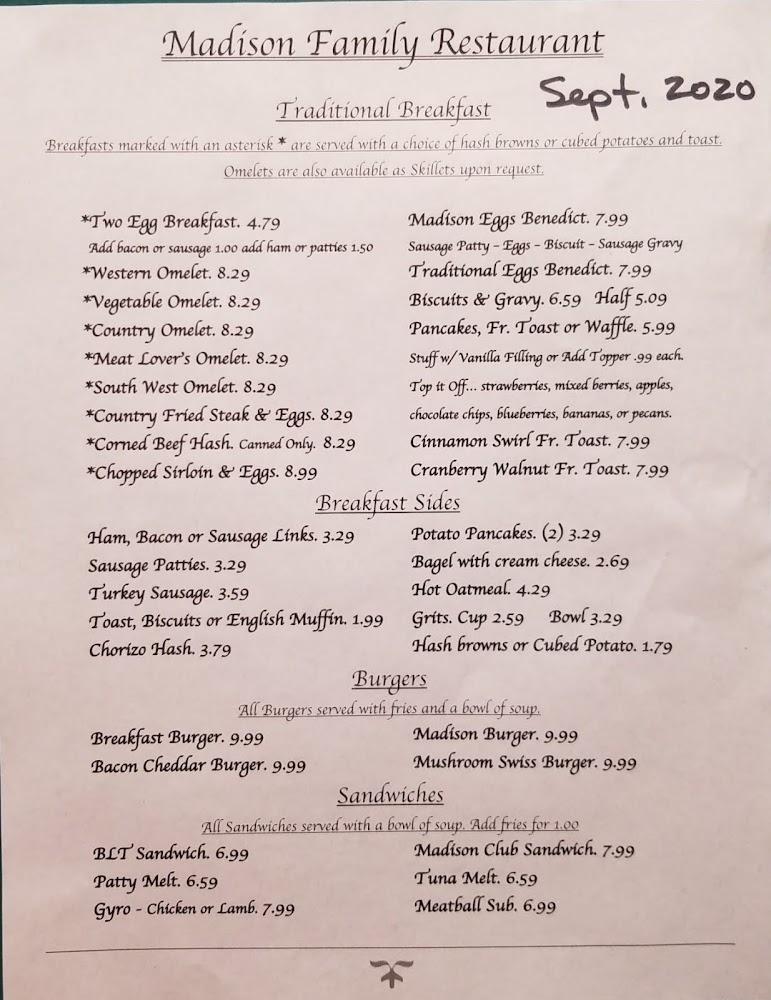 Madison Family Restaurant
Sept. 2020
Traditional Breakfast
Breakfasts marked with an asterisk * are served with a choice of hash browns or cubed potatoes and toast.
Omelets are also available as Skillets upon request.
*Two Egg Breakfast. 4.79
Add bacon or sausage 1.00 add ham or patties 1.50
*Western Omelet. 8.29
*Vegetable Omelet. 8.29
*Country Omelet. 8.29
*Meat Lover's Omelet. 8.29
*South West Omelet. 8.29
*Country Fried Steak & Eggs. 8.29
*Corned Beef Hash. Canned Only. 8.29
*Chopped Sirloin & Eggs. 8.99
Madison Eggs Benedict. 7.99
Sausage Patty - Eggs - Biscuit - Sausage Gravy
Traditional Eggs Benedict. 7.99
Biscuits & Gravy. 6.59 Half 5.09
Pancakes, Fr. Toast or Waffle. 5.99
Stuff w/ Vanilla Filling or Add Topper .99 each.
Top it Off... strawberries, mixed berries, apples,
chocolate chips, blueberries, bananas, or pecans.
Cinnamon Swirl Fr. Toast. 7.99
Cranberry Walnut Fr. Toast. 7.99
Breakfast Sides
Ham, Bacon or Sausage Links. 3.29
Sausage Patties. 3.29
Turkey Sausage. 3.59
Toast, Biscuits or English Muffin. 1.99
Chorizo Hash. 3.79
Potato Pancakes. (2) 3.29
Bagel with cream cheese. 2.69
Hot Oatmeal. 4.29
Grits. Cup 2.59 Bowl 3.29
Hash browns or Cubed Potato. 1.79
Burgers
All Burgers served with fries and a bowl of soup.
Breakfast Burger. 9.99
Bacon Cheddar Burger. 9.99
Madison Burger. 9.99
Mushroom Swiss Burger. 9.99
Sandwiches
All Sandwiches served with a bowl of soup. Add fries for 1.00
BLT Sandwich. 6.99
Patty Melt. 6.59
Gyro - Chicken or Lamb. 7.99
Madison Club Sandwich. 7.99
Tuna Melt. 6.59
Meatball Sub. 6.99